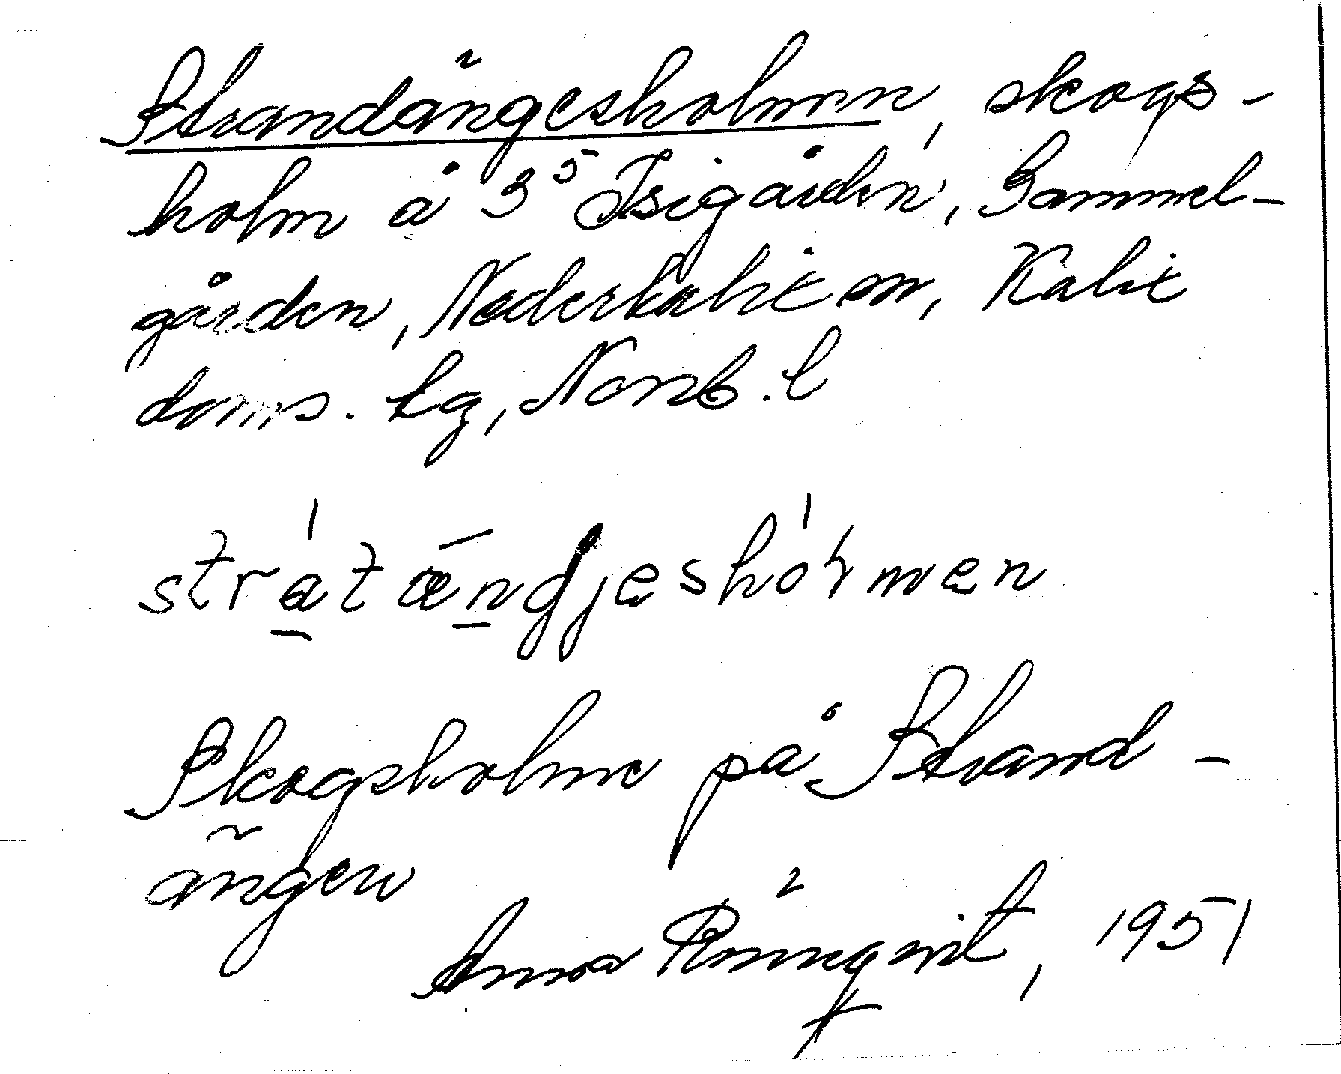 Strandängesholmen, skogs-
holm å 3⁵ Isigården, Gammel-
gården, Nederkalix sn, Kalix
doms. lg, Norrb. l
stratændjeshórmen
Skogsholme på Strand-
ängen
Anna Rönnqvist, 1951